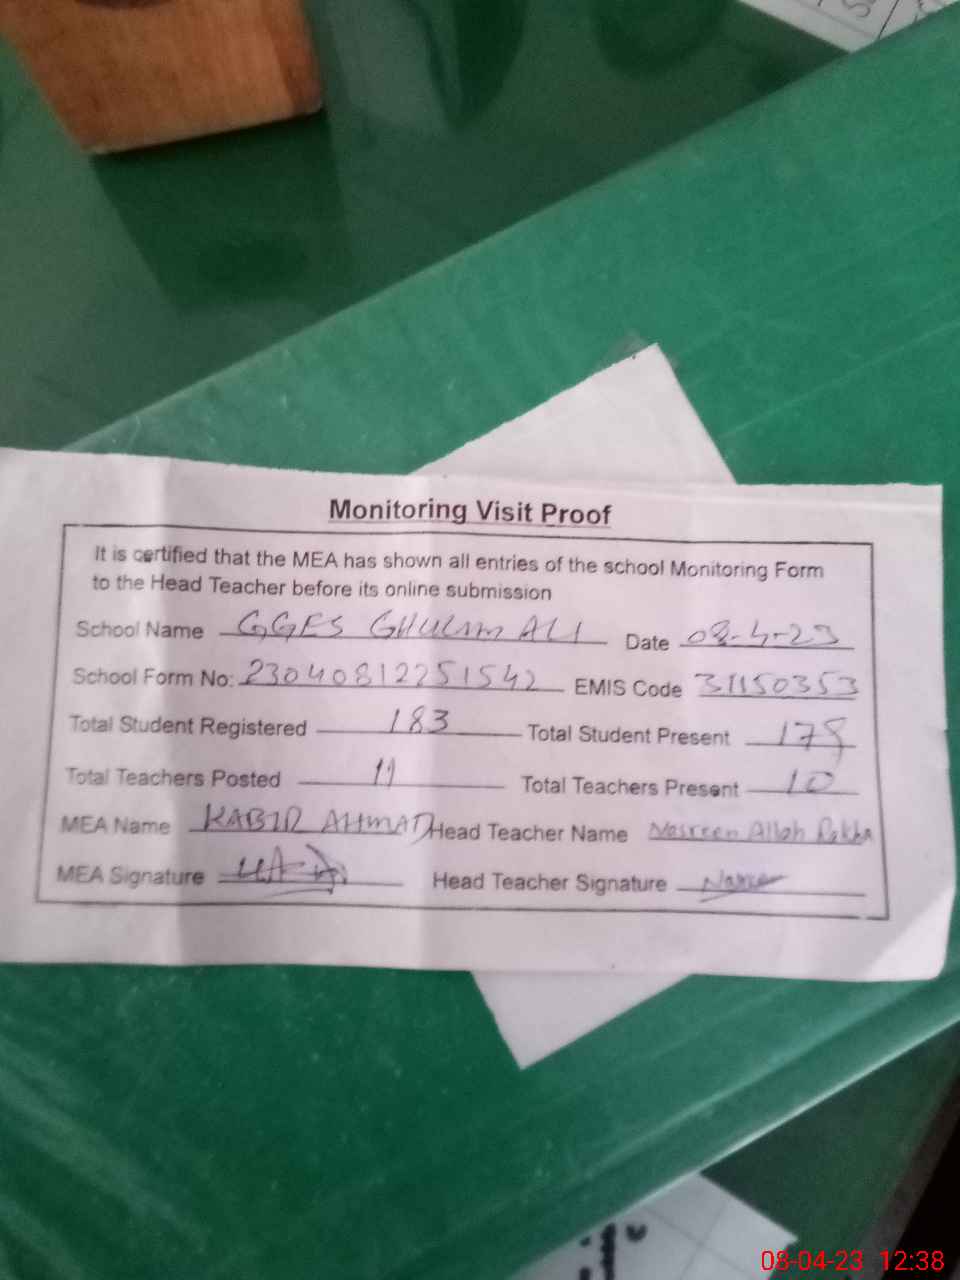 Monitoring Visit Proof
It is certified that the MEA has shown all entries of the school Monitoring Form
to the Head Teacher before its online submission
School Name GGES GHULAM ALI Date 08-4-23
School Form No: 23040812251542 EMIS Code 31150353
Total Student Registered 183 Total Student Present 178
Total Teachers Posted 11 Total Teachers Present 10
MEA Name KABIR AHMAD Head Teacher Name Nasreen Allah Rakha
MEA Signature Head Teacher Signature
08-04-23 12:38